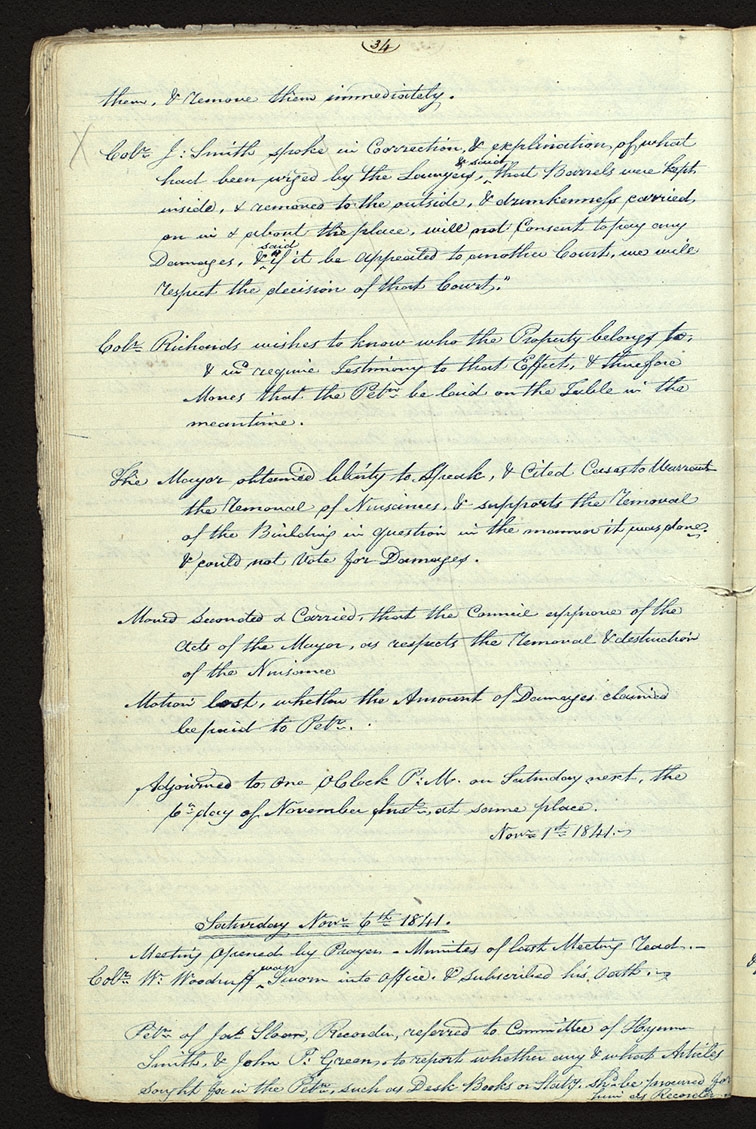 34
them, & remove them immediately.
X
Colr. J: Smith spoke in Correction, & explination, of what
had been urged by the Lawyers, & said, that Barrels were kept
inside, & removed to the outside, & drunkenness carried,
on in & about the place, will not Consent to pay any
Damages, & said "if it be appealed to another Court, we will
respect the decision of that Court."
Colr. Richards wishes to know who the Property belongs to,
& wd. require Testimony to that Effect, & therefore
Moves that the Petn. be laid on the Table in the
meantime.
The Mayor obtained liberty to Speak, & Cited Cases to Warrant
the Removal of Nuisances, & supports the Removal
of the Building in question in the manner it was done,
& could not Vote for Damages.
Moved Seconded & Carried, that the Council approve of the
Acts of the Mayor, as respects the Removal & destruction
of the Nuisance
Motion lost, whether the Amount of Damages claimed
be paid to Petr.
Adjourned to One OClock P: M. on Saturday next, the
6th day of November Inst., at same place.
Novr. 1st 1841.
Saturday Novr. 6th 1841.
Meeting opened by Prayer - Minutes of last Meeting read. -
Colr. Wr. Woodruff was Sworn into Office. & subscribed his Oath.
Petn. of Jas. Sloan, Recorder, referred to Committee of Hyrum
Smith, & John P: Green, to report whether any & what Articles
sought for in the Petn., such as Desk Books or Staty. shd. be procured for
him as Recorder